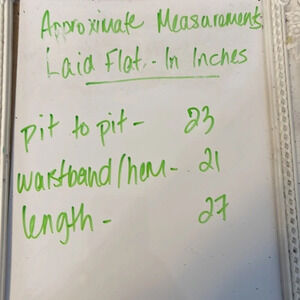 Approximate Measurements
Laid Flat - In Inches
pit to pit - 23
waistband/hem - 21
length - 27